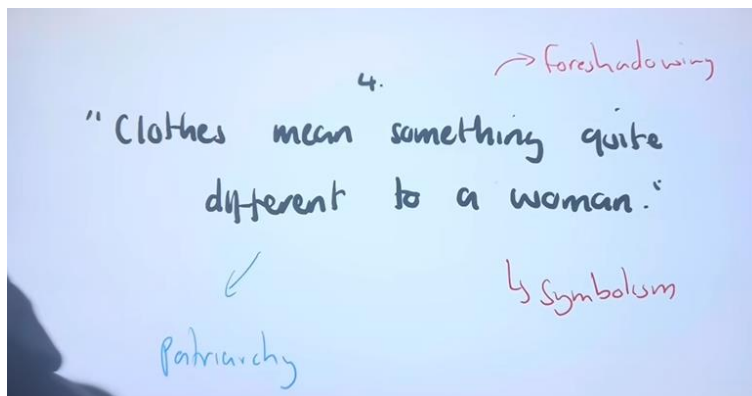 → foreshadowing
4.
"Clothes mean something quite
different to a woman."
↳ Symbolism
Patriarchy